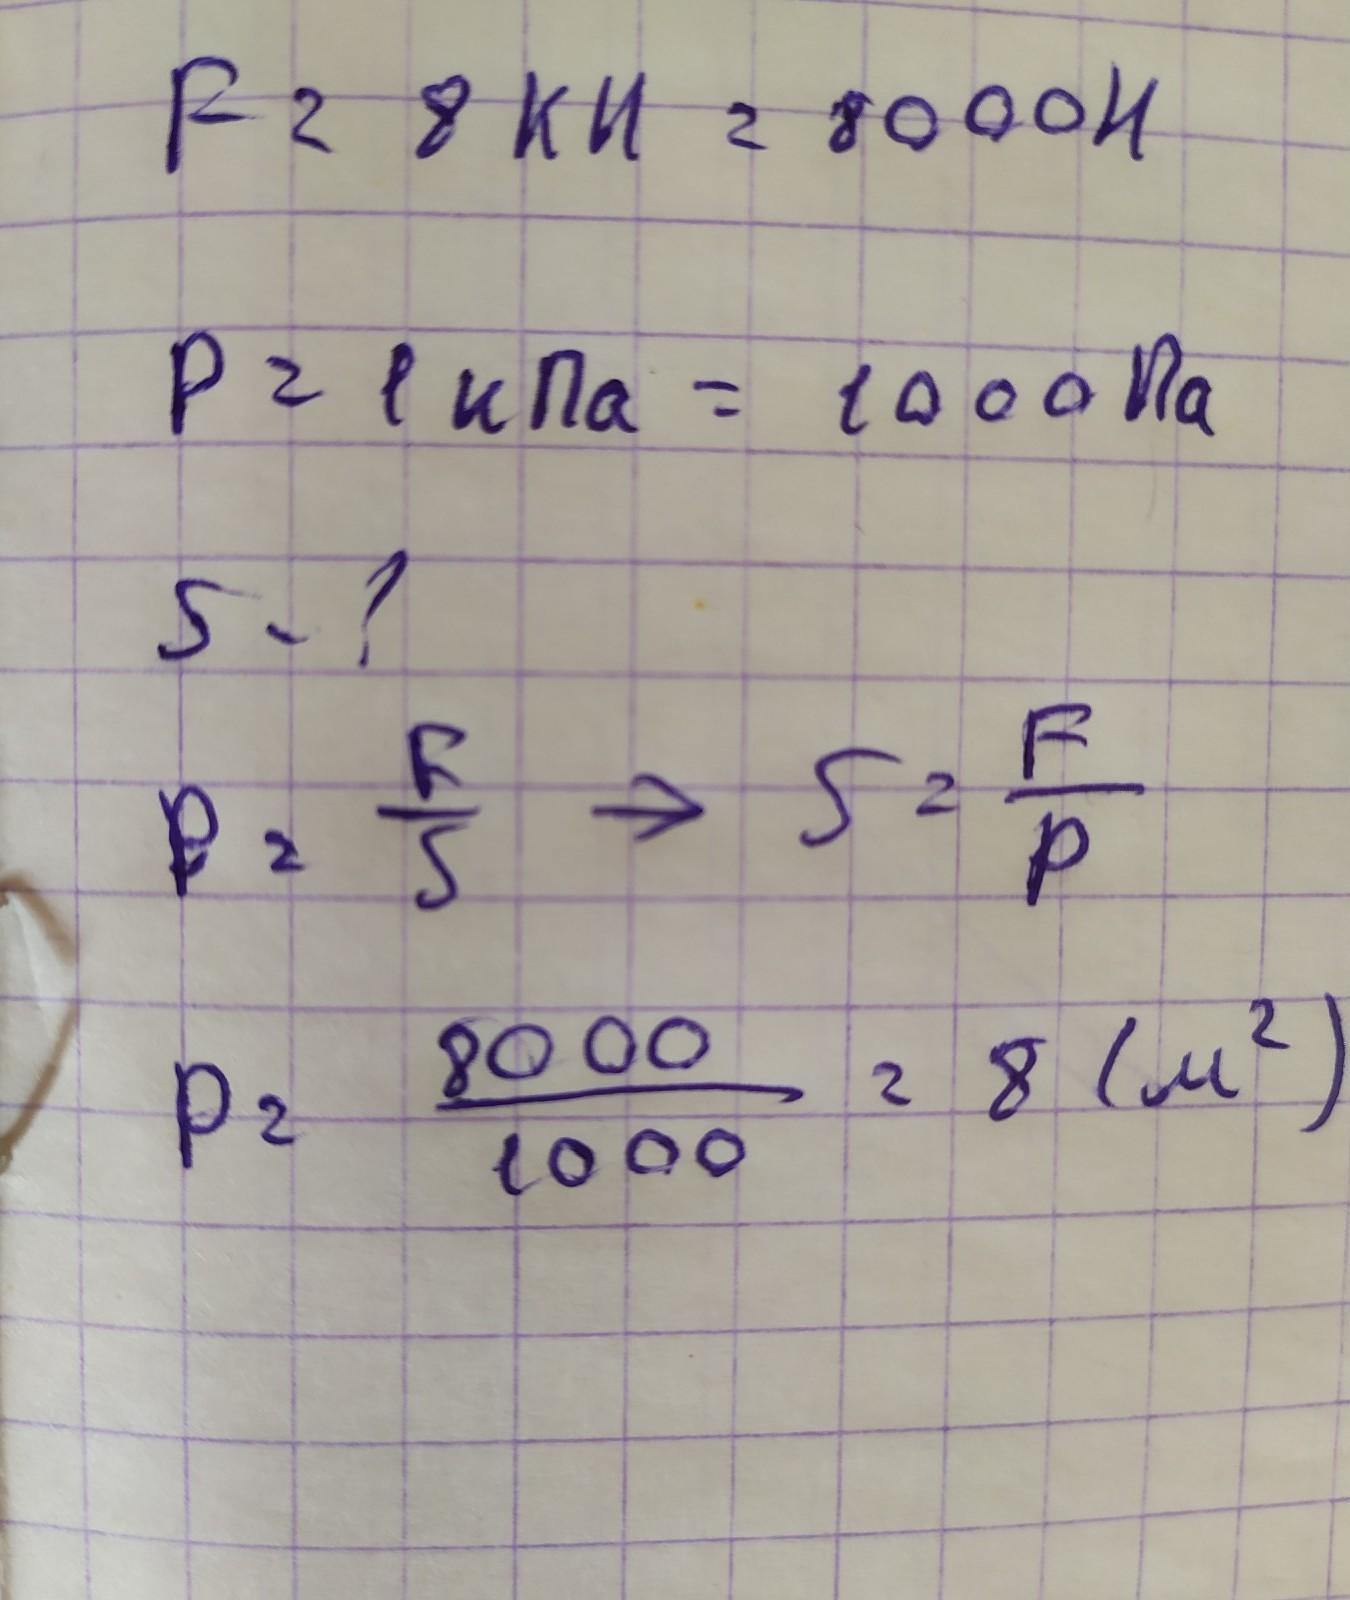 F = 8 кН = 8000Н
P = 1 кПа = 1000Па
S - ?
P = F/S → S = F/P
P = 8000/1000 = 8 (м²)